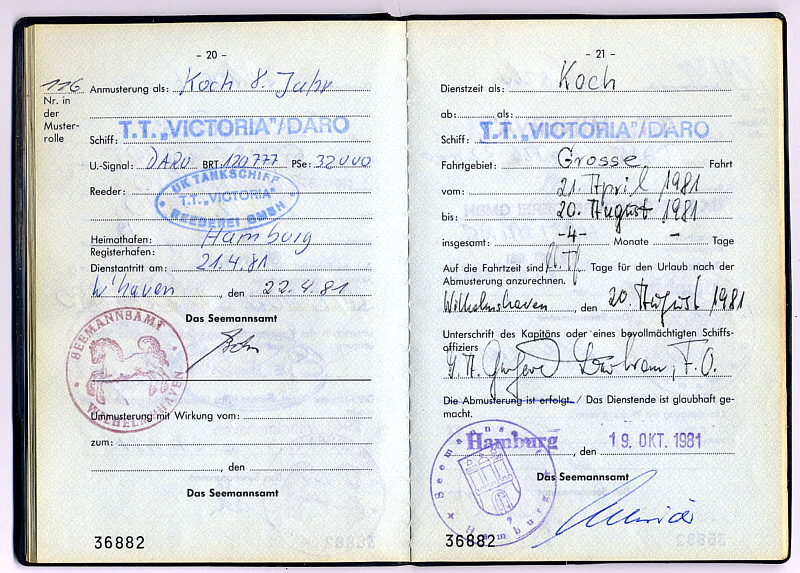 - 20 -
116 Anmusterung als: Koch 8. Jahr
Nr. in
der
Muster-
rolle
Schiff: T.T. „VICTORIA"/DARO
U.-Signal: DARO BRT: 120777 PSe: 32000
UK TANKSCHIFF
Reeder: T.T. „VICTORIA"
REEDEREI GMBH
Heimathafen: Hamburg
Registerhafen:
Dienstantritt am: 21.4.81
W'haven, den 22.4.81
Das Seemannsamt
SEEMANNSAMT
WILHELMSHAVEN
Ummusterung mit Wirkung vom:
zum:
, den
Das Seemannsamt
36882
- 21 -
Dienstzeit als: Koch
ab: als:
Schiff: T.T. „VICTORIA"/DARO
Fahrtgebiet: Grosse Fahrt
vom: 21. April 1981
bis: 20. August 1981
insgesamt: -4- Monate - Tage
Auf die Fahrtzeit sind Tage für den Urlaub nach der
Abmusterung anzurechnen.
Wilhelmshaven, den 20. August 1981
Unterschrift des Kapitäns oder eines bevollmächtigten Schiffs-
offiziers
Die Abmusterung ist erfolgt. / Das Dienstende ist glaubhaft ge-
macht.
Hamburg, den 19. OKT. 1981
Seemannsamt
Hamburg
Das Seemannsamt
36882